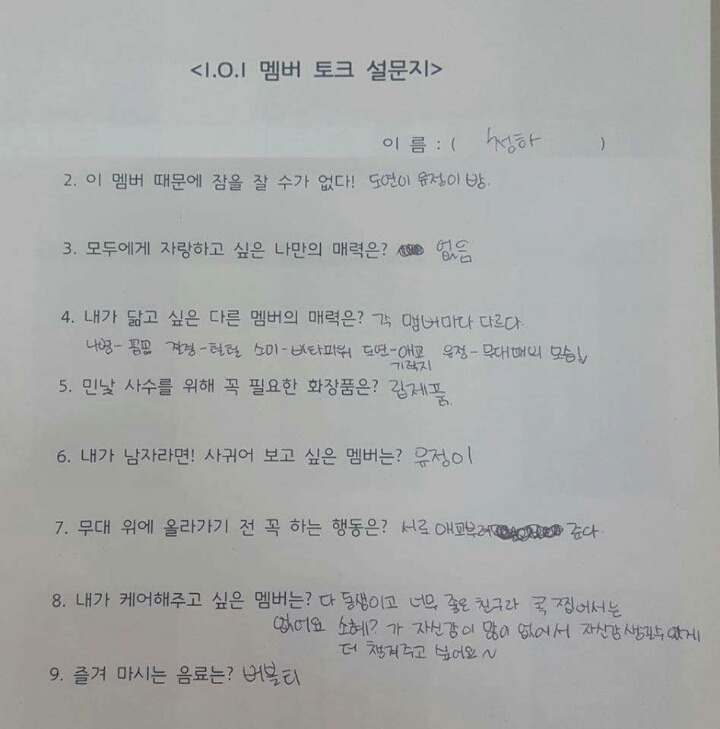 <I.O.I 멤버 토크 설문지>
이 름 : ( 청하 )
2. 이 멤버 때문에 잠을 잘 수가 없다! 도연이 유정이 방.
3. 모두에게 자랑하고 싶은 나만의 매력은? 없음
4. 내가 닮고 싶은 다른 멤버의 매력은? 각 맴버마다 다르다.
나영-꼼꼼 결경-털털 소미-비타파워 도연-애교 유정-무대때의 모습
기럭지
5. 민낯 사수를 위해 꼭 필요한 화장품은? 립제품.
6. 내가 남자라면! 사귀어 보고 싶은 멤버는? 유정이
7. 무대 위에 올라가기 전 꼭 하는 행동은? 서로 애교부려 준다.
8. 내가 케어해주고 싶은 멤버는? 다 동생이고 너무 좋은 친구라 콕 찝어서는
없어요 소혜? 가 자신감이 많이 없어서 자신감 생길수 있게
더 챙겨주고 싶어요~
9. 즐겨 마시는 음료는? 버블티